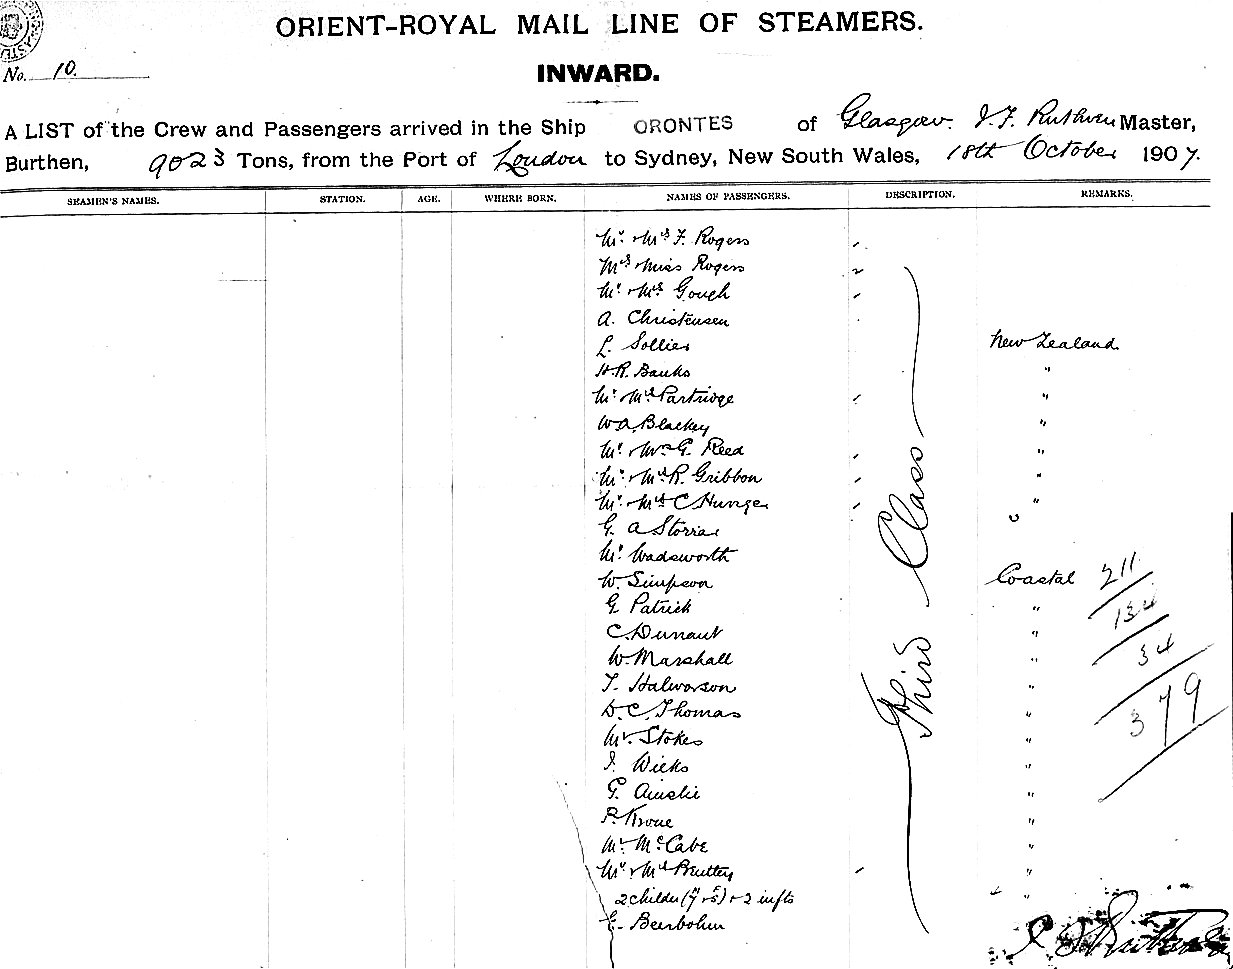 ORIENT-ROYAL MAIL LINE OF STEAMERS.
No. 10.
INWARD.
A LIST of the Crew and Passengers arrived in the Ship ORONTES of Glasgow. J. F. Ruthven Master,
Burthen, 9023 Tons, from the Port of London to Sydney, New South Wales, 18th October 1907.
SEAMEN'S NAMES. STATION. AGE. WHERE BORN. NAMES OF PASSENGERS. DESCRIPTION. REMARKS.
Mr. Mrs F. Rogers
Mrs Miss Rogers
Mr. Mrs. Gough
A. Christensen
L. Sollies New Zealand
H. R. Banks "
Mr. Mrs Partridge "
W. A. Blackey "
Mr. Mrs G. Reed "
Mr. Mrs R. Gribbon "
Mr. Mrs C Hunge "
G. A Storrie "
Mr. Wadsworth
W. Simpson Coastal 211
G. Patrick " 134
C. Dunant "
W. Marshall " 34
T. Halvorson "
D. C. Thomas " 379
Mr. Stokes "
J. Wicks "
G. Ainslie "
P. Krone "
Mr. McCabe "
Mr & Mrs Pruttey "
2 childer (7 & 5) + 2 infts "
E. Beerbohm
Third Class